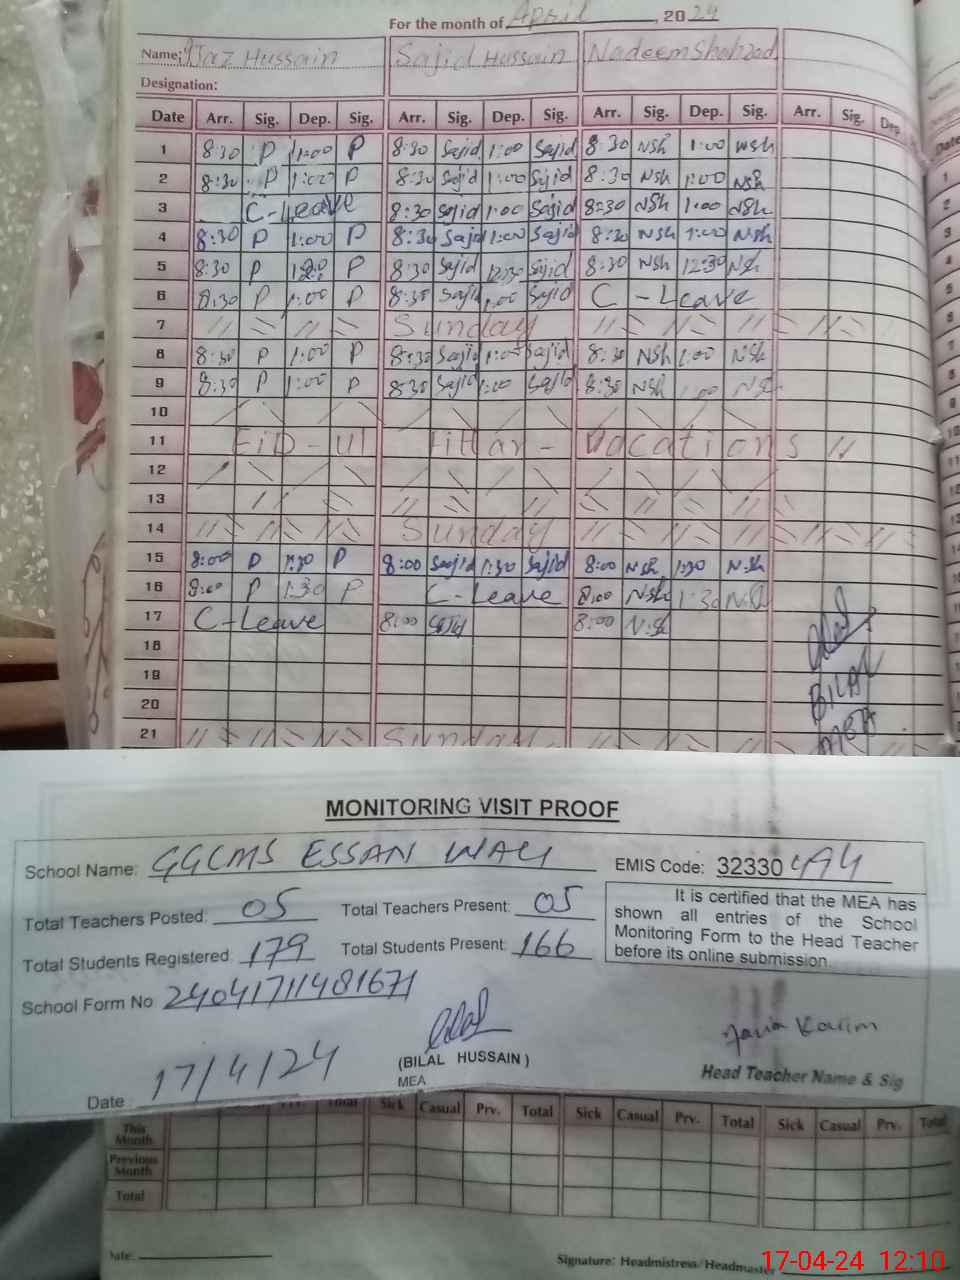 For the month of April, 2024
Name: Ijaz Hussain Sajid Hussain Nadeem Shahzad
Designation:
Date Arr. Sig. Dep. Sig. Arr. Sig. Dep. Sig. Arr. Sig. Dep. Sig. Arr. Sig. Dep
1 8:30 P 1:00 P 8:30 Sajid 1:00 Sajid 8:30 NSh 1:00 NSh
2 8:30 P 1:00 P 8:30 Sajid 1:00 Sajid 8:30 NSh 1:00 NSh
3 C-Leave 8:30 Sajid 1:00 Sajid 8:30 NSh 1:00 NSh
4 8:30 P 1:00 P 8:30 Sajid 1:00 Sajid 8:30 NSh 1:00 NSh
5 8:30 P P 8:30 Sajid 12:30 Sajid 8:30 NSh 12:30 NSh
6 8:30 P 1:00 P 8:30 Sajid 1:00 Sajid C - Leave
7 Sunday
8 8:30 P 1:00 P 8:30 Sajid 1:00 Sajid 8:30 NSh 1:00 NSh
9 8:30 P 1:00 P 8:30 Sajid 1:00 Sajid 8:30 NSh 1:00 NSh
10
11 EiD-ul Fittar - Vacations
12
13
14 Sunday
15 8:00 P 1:30 P 8:00 Sajid 1:30 Sajid 8:00 NSh 1:30 NSh
16 8:00 P 1:30 P C-Leave 8:00 NSh 1:30 NSh
17 C-Leave 8:00 Sajid 8:00 NSh
18
19
20 BILAL
21 Sunday MEA
MONITORING VISIT PROOF
School Name: GGCMS ESSAN WALI EMIS Code: 32330494
Total Teachers Posted: 05 Total Teachers Present: 05
Total Students Registered: 179 Total Students Present: 166
It is certified that the MEA has
shown all entries of the School
Monitoring Form to the Head Teacher
before its online submission.
School Form No 24041711481671
Javia Karim
(BILAL HUSSAIN)
MEA
Head Teacher Name & Sig
Date 17/4/24
Total Sick Casual Prv. Total Sick Casual Prv. Total Sick Casual Prv. Total
This Month
Previous Month
Total
Date:
Signature: Headmistress/Headmaster
17-04-24 12:10